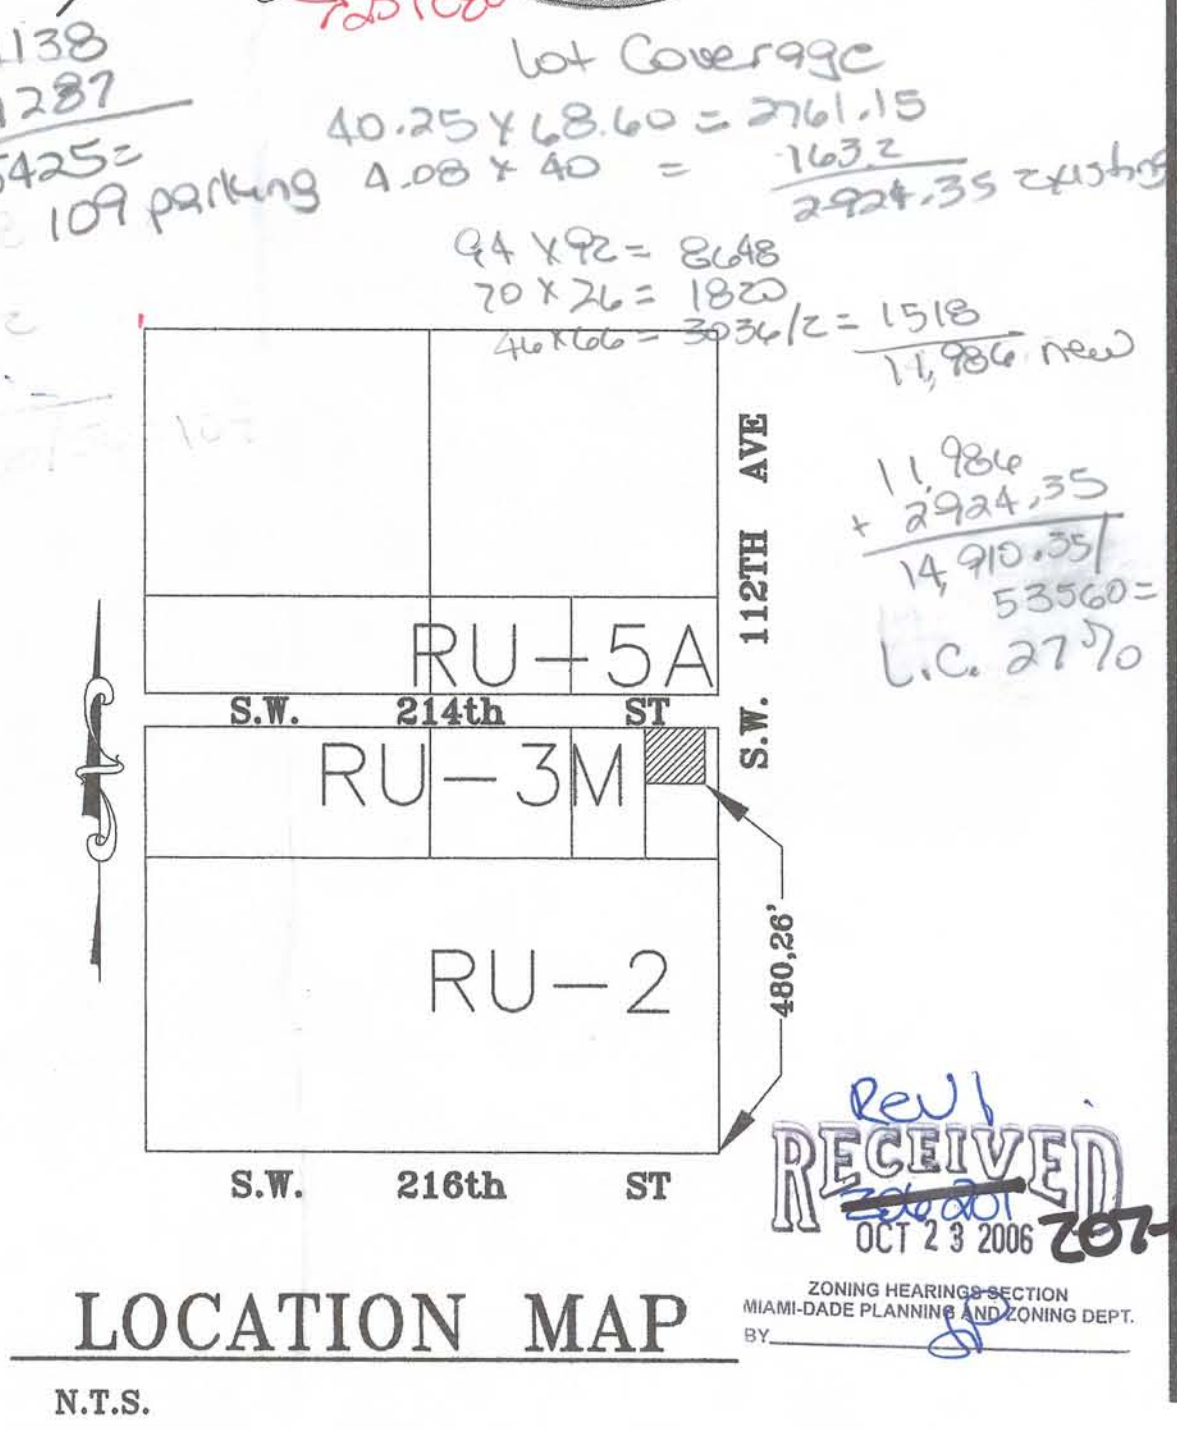 Lot Coverage
138
1287
5425=
109 parking
40.25 x 68.60 = 2761.15
4.08 x 40 = 163.2
2924.35 existing
94 x 92 = 8648
70 x 26 = 1820
46 x 66 = 3036/2 = 1518
11,986 new
11,986
+ 2924.35
14,910.35/
53560=
L.C. 27%
S.W. 112TH AVE
RU-5A
S.W. 214th ST
RU-3M
480,26'
RU-2
S.W. 216th ST
Rev 1
RECEIVED
OCT 23 2006
207-
ZONING HEARINGS SECTION
MIAMI-DADE PLANNING AND ZONING DEPT.
BY
LOCATION MAP
N.T.S.